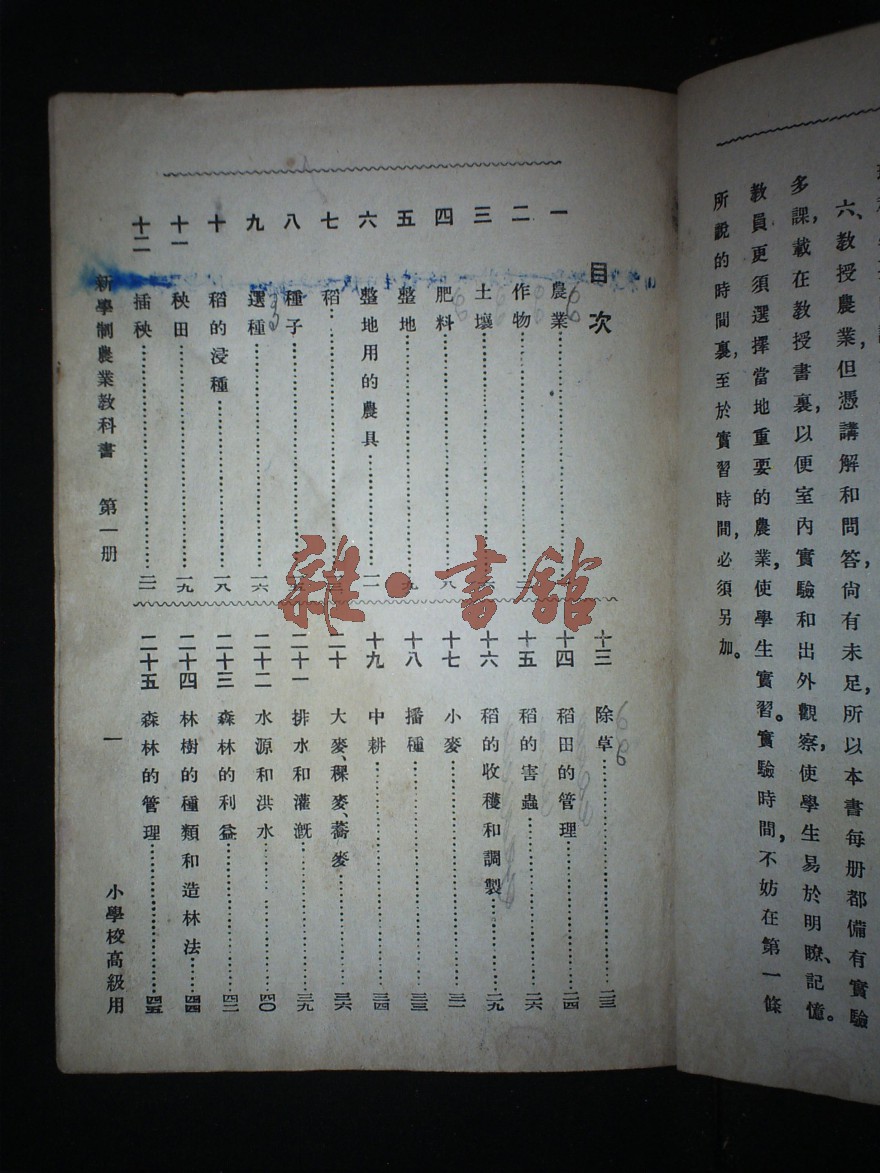 六、教授農業,但憑講解和問答,尙有未足,所以本書每册都備有實驗
多課,載在教授書裏,以便室內實驗和出外觀察,使學生易於明瞭、記憶。
教員更須選擇當地重要的農業,使學生實習。實驗時間,不妨在第一條
所說的時間裏,至於實習時間,必須另加。
目次
一 農業
二 作物
三 土壤
四 肥料 八
五 整地 九
六 整地用的農具
七 稻
八 種子
九 選種 一六
十 稻的浸種 一八
十一 秧田 一九
十二 插秧 二一
十三 除草 二三
十四 稻田的管理 二四
十五 稻的害蟲 二六
十六 稻的收穫和調製 二九
十七 小麥 三一
十八 播種 三三
十九 中耕 三四
二十 大麥、稞麥、蕎麥 三六
二十一 排水和灌溉 三九
二十二 水源和洪水 四〇
二十三 森林的利益 四二
二十四 林樹的種類和造林法 四四
二十五 森林的管理 四五
新學制農業教科書 第一册 一 小學校高級用
雜·書館